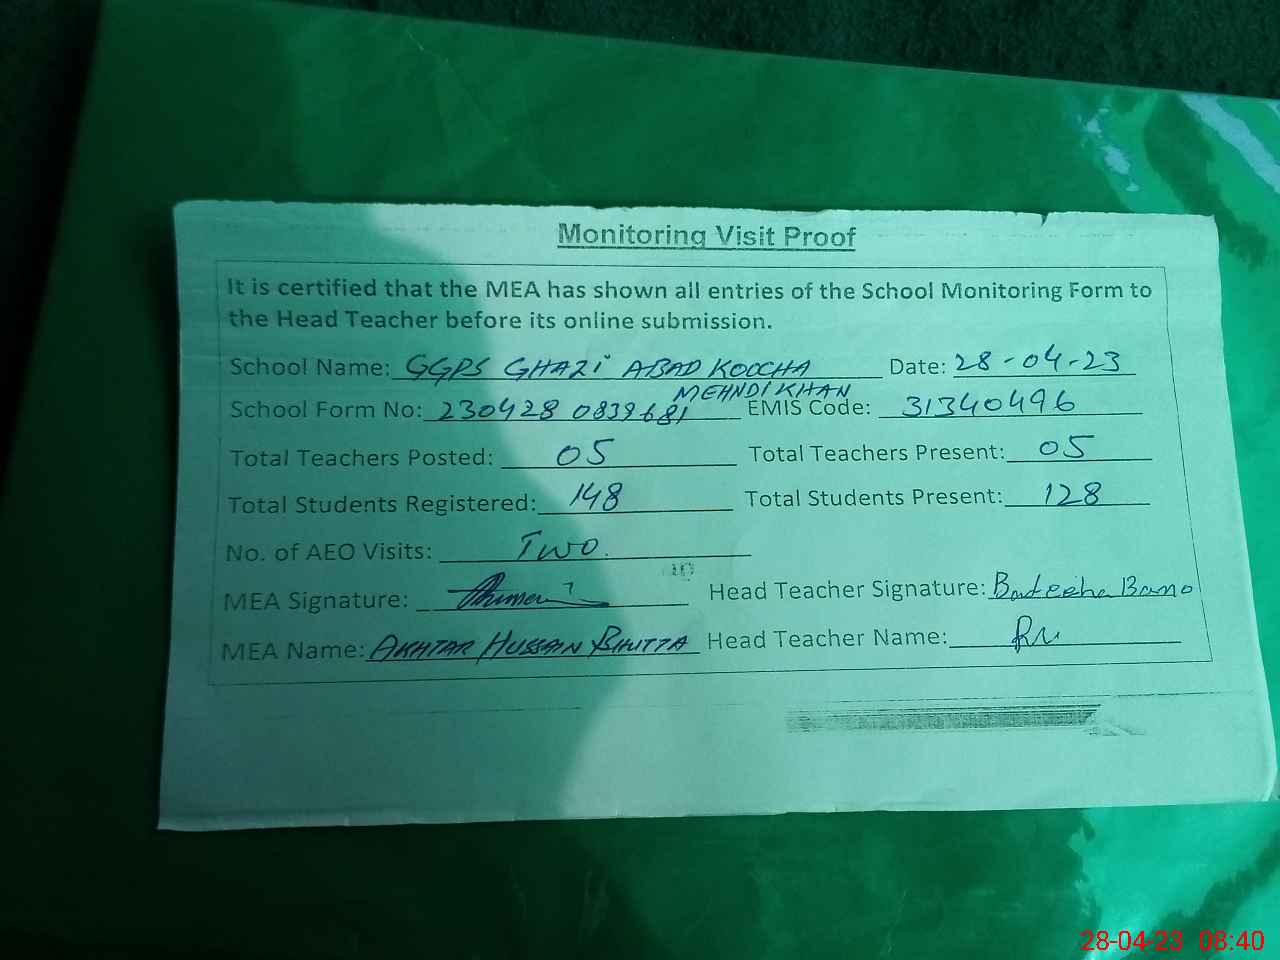 Monitoring Visit Proof
It is certified that the MEA has shown all entries of the School Monitoring Form to
the Head Teacher before its online submission.
School Name: GGPS GHAZI ABAD KOOCHA Date: 28-04-23
MEHNDI KHAN
School Form No: 230428 0839681 EMIS Code: 31340496
Total Teachers Posted: 05 Total Teachers Present: 05
Total Students Registered: 148 Total Students Present: 128
No. of AEO Visits: Two.
MEA Signature: Head Teacher Signature: Bano
MEA Name: AKHTAR HUSSAIN BHUTTA Head Teacher Name:
28-04-23 08:40